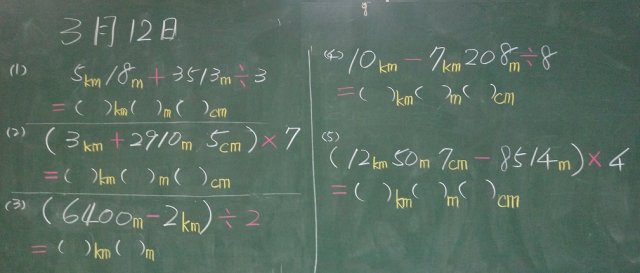 3月12日
(1) 5km18m+3513m÷3
=( )km( )m( )cm
(2) (3km+2910m 5cm)×7
=( )km( )m( )cm
(3) (6400m-2km)÷2
=( )km( )m
(4) 10km-7km208m÷8
=( )km( )m( )cm
(5) (12km50m7cm-8514m)×4
=( )km( )m( )cm